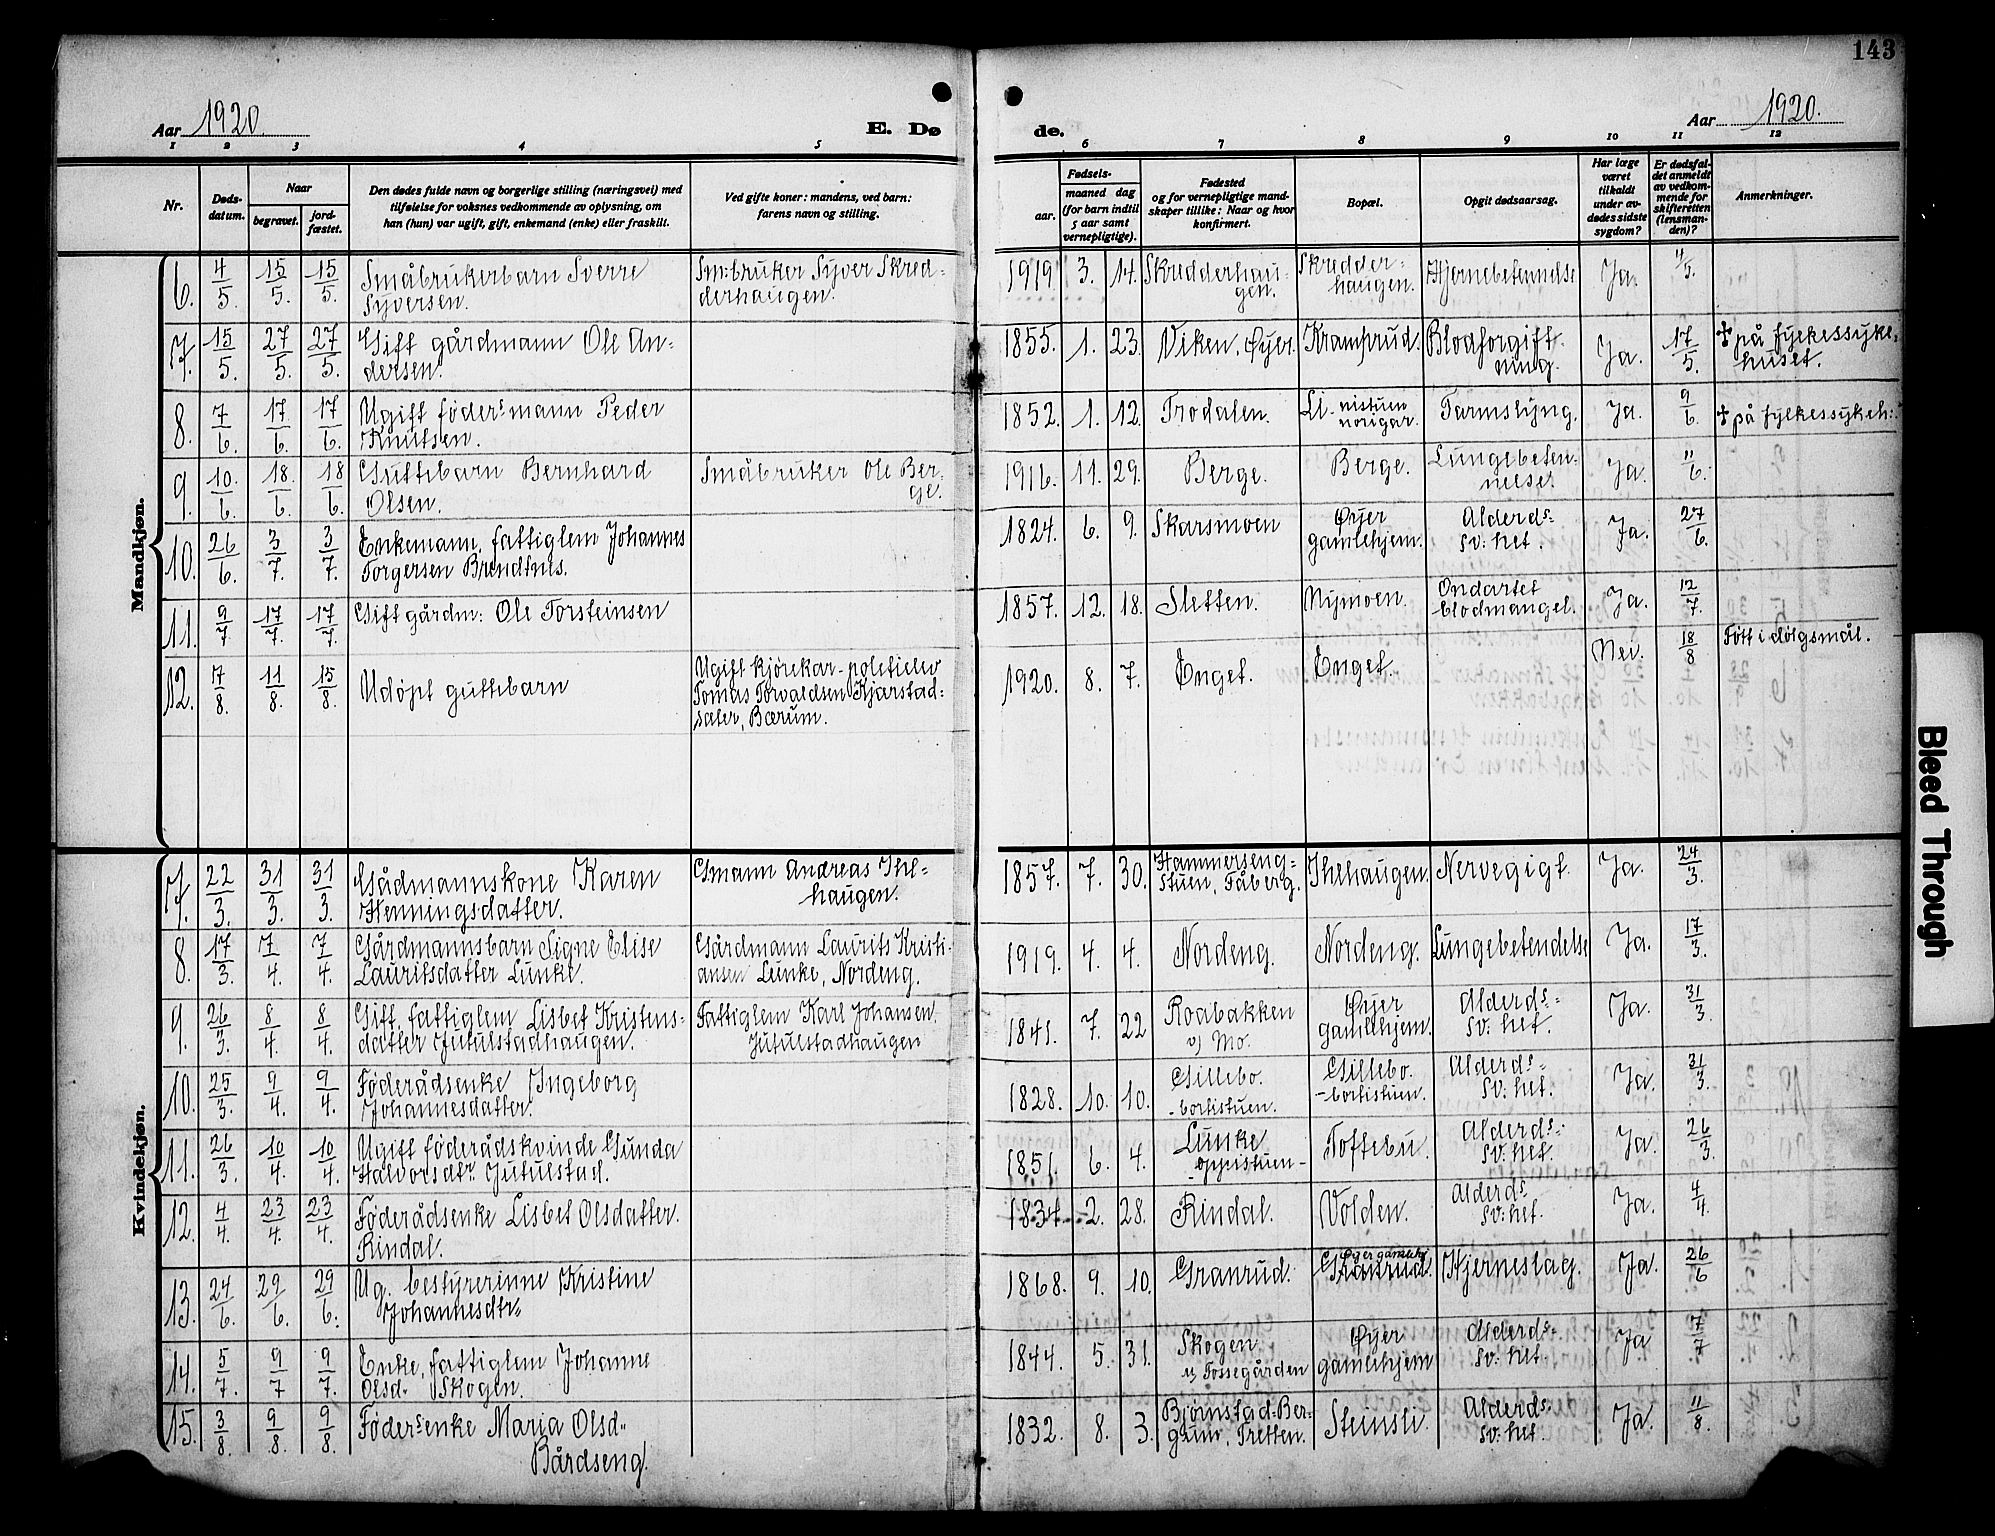 143
Aar 1920.
E. Dø
de.
Aar 1920.
1 2 3 4 5
6 7 8 9 10 11 12
Nr.
Døds-
datum.
Naar
begravet.
jord-
fæstet.
Den dødes fulde navn og borgerlige stilling (næringsvei) med
tilføielse for voksnes vedkommende av oplysning, om
han (hun) var ugift, gift, enkemand (enke) eller fraskilt.
Ved gifte koner: mandens, ved barn:
farens navn og stilling.
Fødsels-
aar.
maaned dag
(for barn indtil
5 aar samt
vernepligtige).
Fødested
og for vernepligtige mand-
skaper tillike: Naar og hvor
konfirmert.
Bopæl.
Opgit dødsaarsag.
Har læge
været
tilkaldt
under av-
dødes sidste
sygdom?
Er dødsfal-
det anmeldt
av vedkom-
mende for
skifteretten
(lensman-
den)?
Anmerkninger.
Mandkjøn.
6. 4/5. 15/5. 15/5. Småbrukerbarn Sverre
Syversen.
Sm:bruker Syver Skred-
derhaugen.
1919 3. 14. Skredderhau-
gen.
Skredder-
haugen.
Hjernebetenndelse Ja. 4/5.
7. 15/5. 27/5. 27/5. Gift gårdmann Ole An-
dersen.
1855. 1. 23. Viken, Øyer. Kramprud. Blodforgift-
ning.
Ja. 17/5. ✝ på fylkessyke-
huset.
8. 7/6. 17/6. 17/6. Ugift føders mann Peder
Knutsen.
1852. 1. 12. Trodalen. Li-nistuen
nordgar.
Tarmslyng. Ja. 9/6. ✝ på fylkessykeh:
9. 10/6. 18/6. 18/6. Guttebarn Bernhard
Olsen.
Småbruker Ole Ber-
ge.
1916. 11. 29. Berge. Berge. Lungebeten-
nelse.
Ja. 11/6.
10. 26/6. 3/7. 3/7. Enkemann, fattiglem Johannes
Torgersen Brendlus.
1824. 6. 9. Skarsmoen Øyer
gamlehjem.
Alderds-
sv: het.
Ja. 27/6.
11. 9/7. 17/7. 17/7. Gift gårdm: Ole Torsteinsen
1857. 12. 18. Sletten. Nymoen. Ondartet
blodmangel.
Ja. 12/7.
12. 17/8. 11/8. 15/8. Udøpt guttebarn
Ugift kjørekar-politielev
Tomas Torvaldsen Kjørstad-
sater, Bærum.
1920. 8. 7. Enget. Enget. Nei. 18/8 Føtt i dølgsmål.
Kvindekjøn.
7. 22/3. 31/3. 31/3. Gådmannskone Karen
Henningsdatter.
Gmann Andreas Ihle-
haugen.
1857. 7. 30. Hammerseng-
stuen, Fåberg.
Ihlehaugen. Nervegigt. Ja. 24/3.
8. 17/3. 7/4. 7/4. Gårdmannsbarn Signe Elise
Lauritsdatter Lunke.
Gårdmann Laurits Kristi-
ansen Lunke, Nordeng.
1919. 4. 4. Nordeng. Nordeng. Lungebetendelse Ja. 17/3.
9. 26/3. 8/4. 8/4. Gift, fattiglem Lisbet Kristens-
datter Jutulstadhaugen.
Fattiglem Karl Johansen.
Jutulstadhaugen
1841. 7. 22 Roabakken
v) Mo.
Øyer
gamlehjem.
Alderds-
sv: het.
Ja. 31/3.
10. 25/3. 9/4. 9/4. Føderådsenke Ingeborg
Johannesdatter.
1828. 10. 10. Gillebo.
-bortistuen.
Gillebo.
-bortistuen.
Alderds-
sv: het.
Ja. 31/3.
11. 26/3. 10/4. 10/4. Ugift føderådskvinde Gunda
Halvorsdtr. Jutulstad.
1851. 6. 4. Lunke
-oppistuen-
Toftebu. Alderds-
sv: het.
Ja. 26/3.
12. 4/4. 23/4. 23/4. Føderådsenke Lisbet Olsdatter.
Rindal.
1834. 2. 28. Rindal. Volden. Alderds
sv: het.
Ja. 4/4.
13. 24/6. 29/6. 29/6. Ug. bestyrerinne Kristine
Johannesdtr.
1868. 9. 10. Granrud. Øyer gamleh.
Granrud.
Hjerneslag. Ja. 26/6
14. 5/7. 9/7 9/7. Enke, fattiglem Johanne
Olsd. Skogen.
1844. 5. 31. Skogen
u) Fossegården
Øyer
gamlehjem
Alderds-
sv: het
Ja 7/7
15. 3/8. 9/8. 9/8. Føders enke Marja Olsd.
Bårdseng.
1832. 8. 3. Bjørnstad-Ber-
gum, Tretten.
Steinsli. Alderds-
sv: het.
Ja. 11/8
Bleed Through